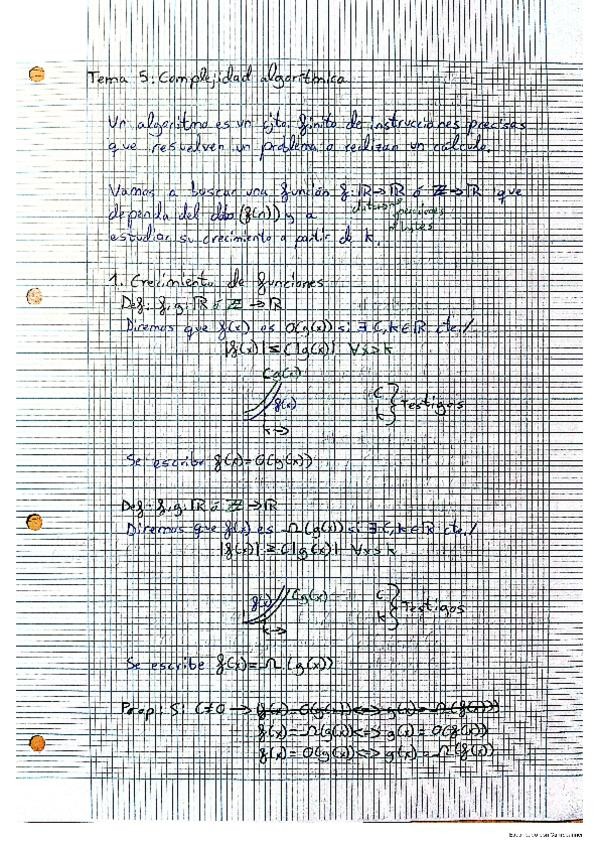 Tema 5: Complejidad algorítmica
Un algoritmo es un cjto. finito de instrucciones precisas
que resuelven un problema o realizan un cálculo.
Vamos a buscar una función f: ℝ→ℝ ó ℤ→ℝ que
dependa del (f(n)) y a
estudiar su crecimiento a partir de k.
1. Crecimiento de funciones
Def: f, g: ℝ ó ℤ → ℝ
Diremos que f(x) es O(g(x)) si ∃ C, k ∈ ℝ cte. /
|f(x)| ≤ C|g(x)| ∀x>k
Cg(x)
f(x)
k→
C
k
Testigos
Se escribe f(x)=O(g(x))
Def: f, g: ℝ ó ℤ → ℝ
Diremos que f(x) es Ω(g(x)) si ∃ C, k ∈ ℝ cte. /
|f(x)| ≥ C|g(x)| ∀x>k
f(x) Cg(x)
k→
C
k
Testigos
Se escribe f(x)=Ω(g(x))
Prop: Si C≠0 → f(x)=O(g(x)) <=> g(x)=Ω(f(x))
f(x)=Ω(g(x)) <=> g(x)=O(f(x))
f(x)=O(g(x)) <=> g(x)=Ω(f(x))